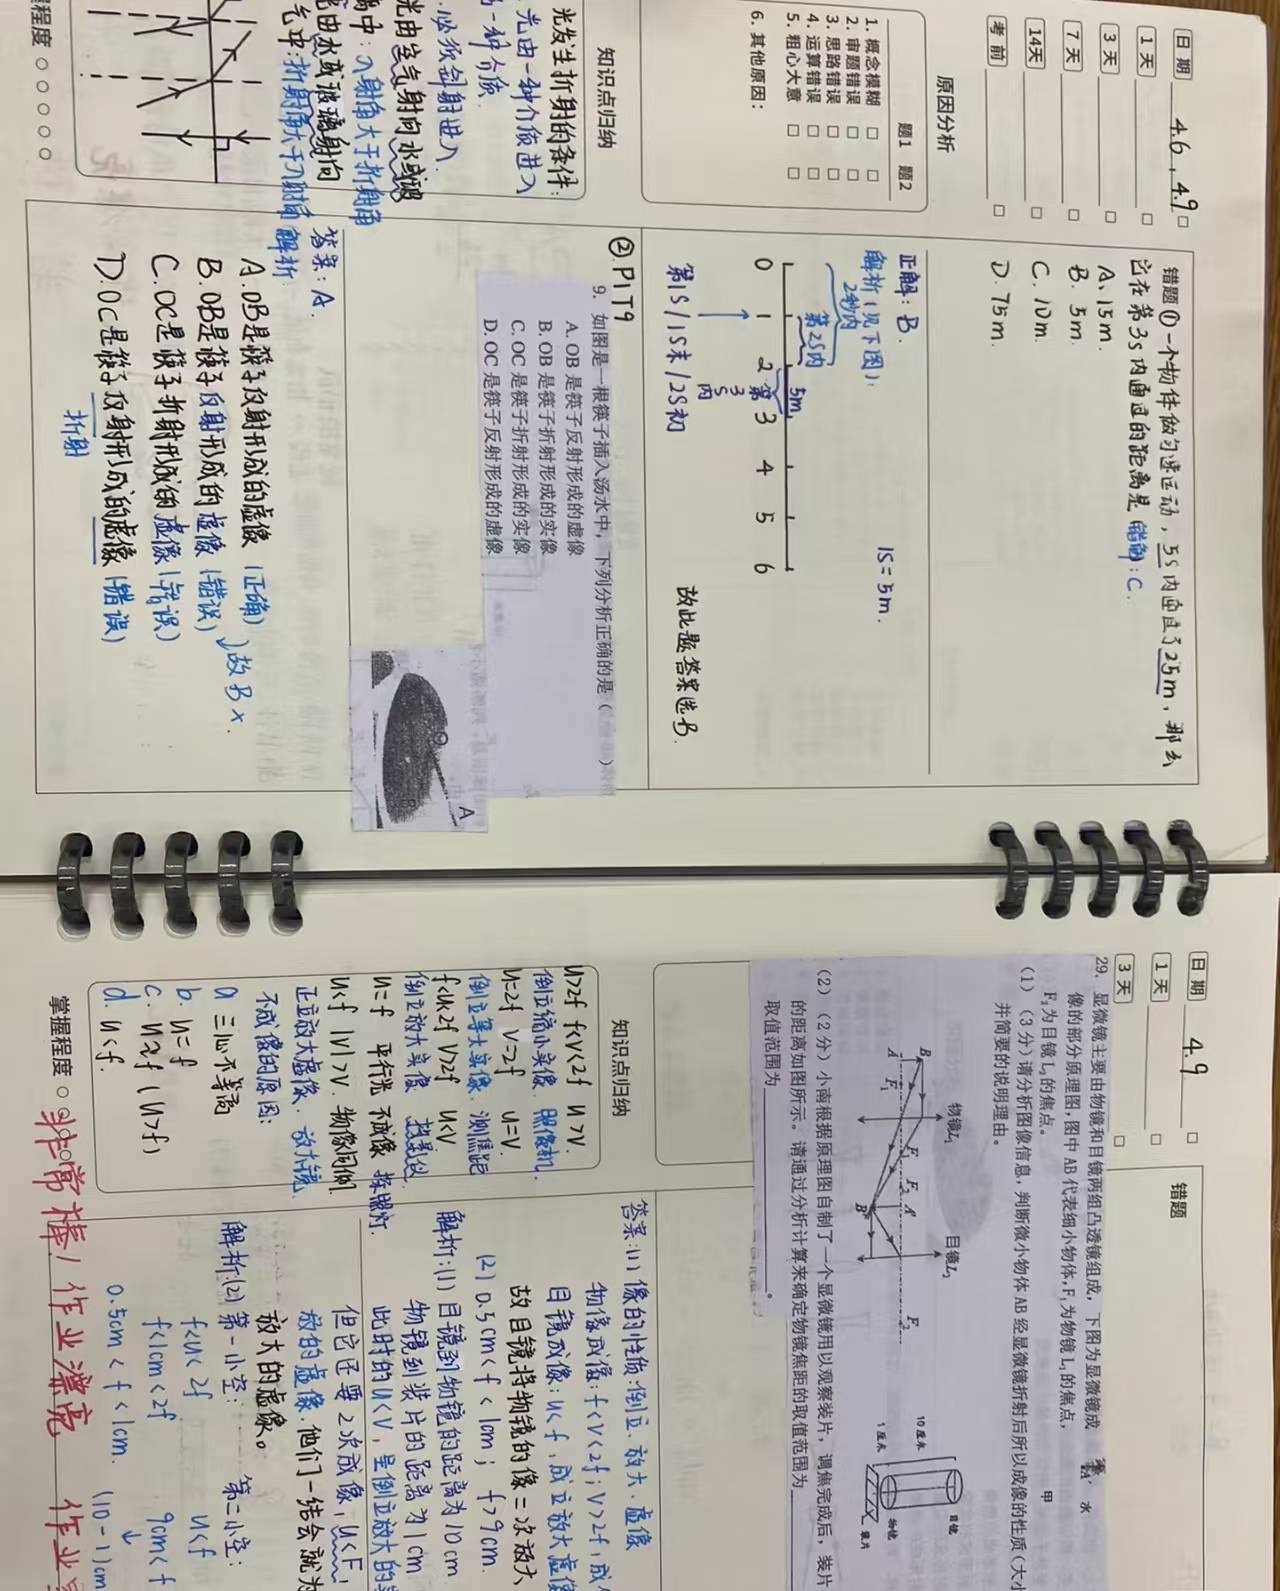 日期 4.6, 4.9
1天
3天
7天
14天
考前
原因分析
题1 题2
1. 概念模糊
2. 审题错误
3. 思路错误
4. 运算错误
5. 粗心大意
6. 其他原因：
知识点归纳
光发生折射的条件:
光由一种介质进入
一种介质.
必须斜射进入.
光由空气射向水或玻
璃中: 入射角大于折射角
由水或玻璃射向
气中: 折射角大于入射角
程度
错题①一个物体做匀速运动, 5s内通过了25m, 那么
它在第3s内通过的距离是 错解: C.
A. 15m.
B. 5m.
C. 10m.
D. 75m.
正解: B.
1S = 5m.
解析(见下图):
2秒内
第2S内
5m
0 1 2 3 4 5 6
第3S内
第1S/1S末/2S初
故此题答案选B.
②. P1T9
9. 如图是一根筷子插入汤水中，下列分析正确的是（
A. OB 是筷子反射形成的虚像
B. OB 是筷子折射形成的实像
C. OC 是筷子折射形成的实像
D. OC 是筷子反射形成的虚像
A
答案: A.
解析:
A. OB是筷子反射形成的虚像 (正确)
B. OB是筷子反射形成的虚像 (错误) 故B×.
C. OC是筷子折射形成的虚像 (错误)
D. OC是筷子反射形成的虚像 (错误)
折射
日期 4.9
1天
3天
错题
29. 显微镜主要由物镜和目镜两组凸透镜组成，下图为显微镜成
像的部分原理图，图中 AB 代表细小物体，F₁为物镜 L₁的焦点，
F₂为目镜 L₂的焦点。
甲
水
（1）（3 分）请分析图像信息，判断微小物体 AB 经显微镜折射后所以成像的性质（大小
并简要的说明理由。
物镜L₁ 目镜L₂
B
A F₁ F₁ F₂ A' F₂
B'
10厘米
1厘米
目镜
物镜
装片
（2）（2 分）小南根据原理图自制了一个显微镜用以观察装片，调焦完成后，装片
的距离如图所示。请通过分析计算来确定物镜焦距的取值范围为
取值范围为 。
知识点归纳
u>2f f<v<2f u>v.
倒立缩小实像. 照像机.
u=2f v=2f u=v.
倒立等大实像. 测焦距
f<u<2f v>2f u<v
倒立放大实像
u=f 平行光 不成像 探照灯.
u<f |v|>v. 物像同侧.
正立放大虚像. 放大镜.
不成像的原因:
a 三心不等高
b. u=f
d. u<f.
掌握程度
答案:(1) 像的性质:倒立、放大、虚像
物像成像: f<v<2f; v>2f,
目镜成像: u<f, 成立放大虚像
故目镜将物镜的像二次放大
(2) 0.5cm<f<1cm; f>9cm.
解析:(1) 目镜到物镜的距离为10cm
物镜到装片的距离为1cm
此时的u<v, 呈倒立放大的
但它还要2次成像, u<F,
放的虚像. 他们一结会就为
放大的虚像。
解析:(2) 第一小空: 第二小空:
f<u<2f u<f
f<1cm<2f 9cm<f
0.5cm<f<1cm. (10-1)cm
非常棒! 作业漂亮 作业